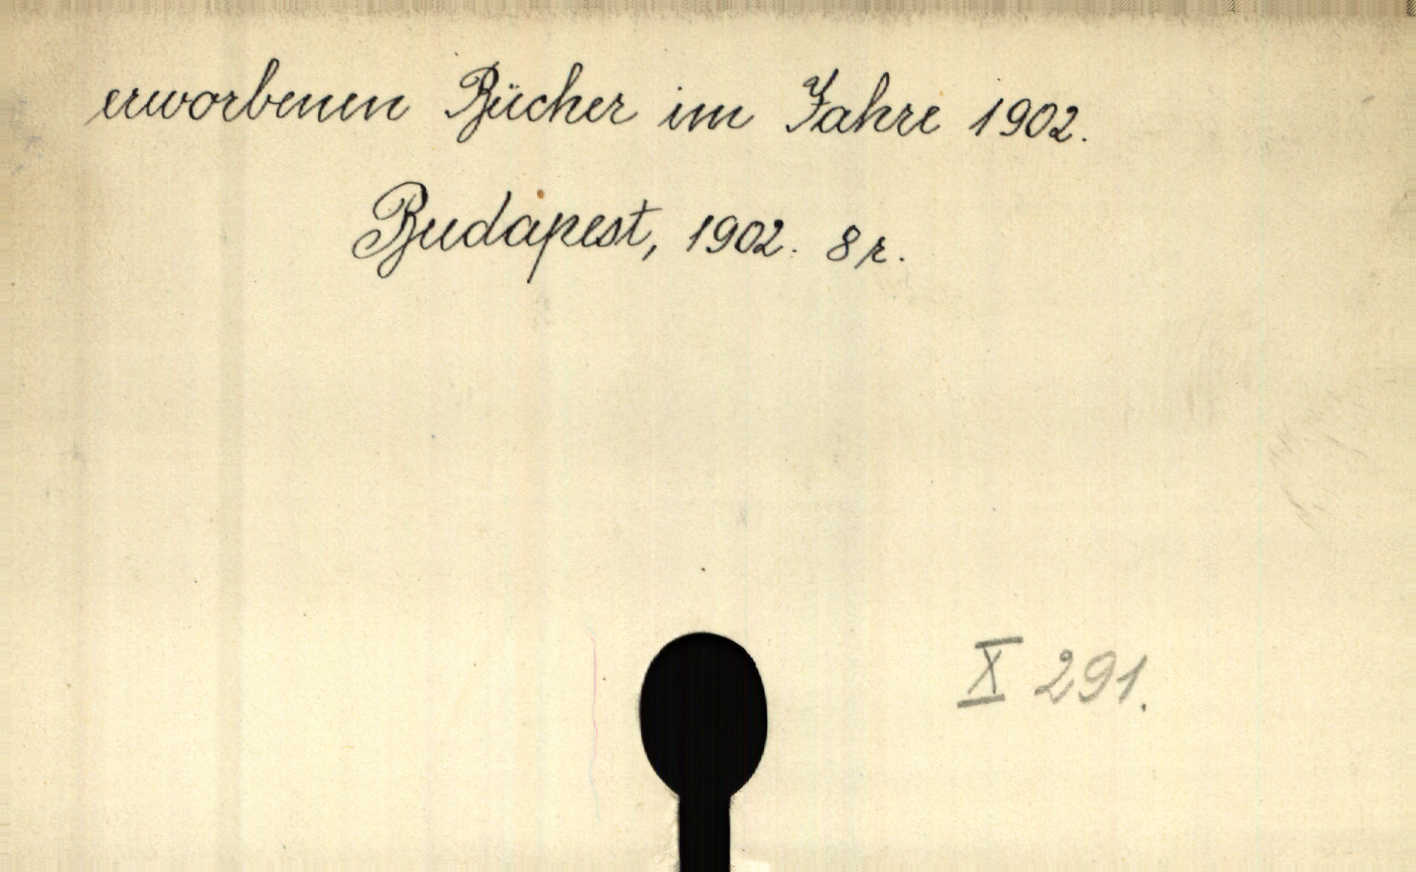 erworbenen Bücher im Jahre 1902.
Budapest, 1902. 8r.
X 291.